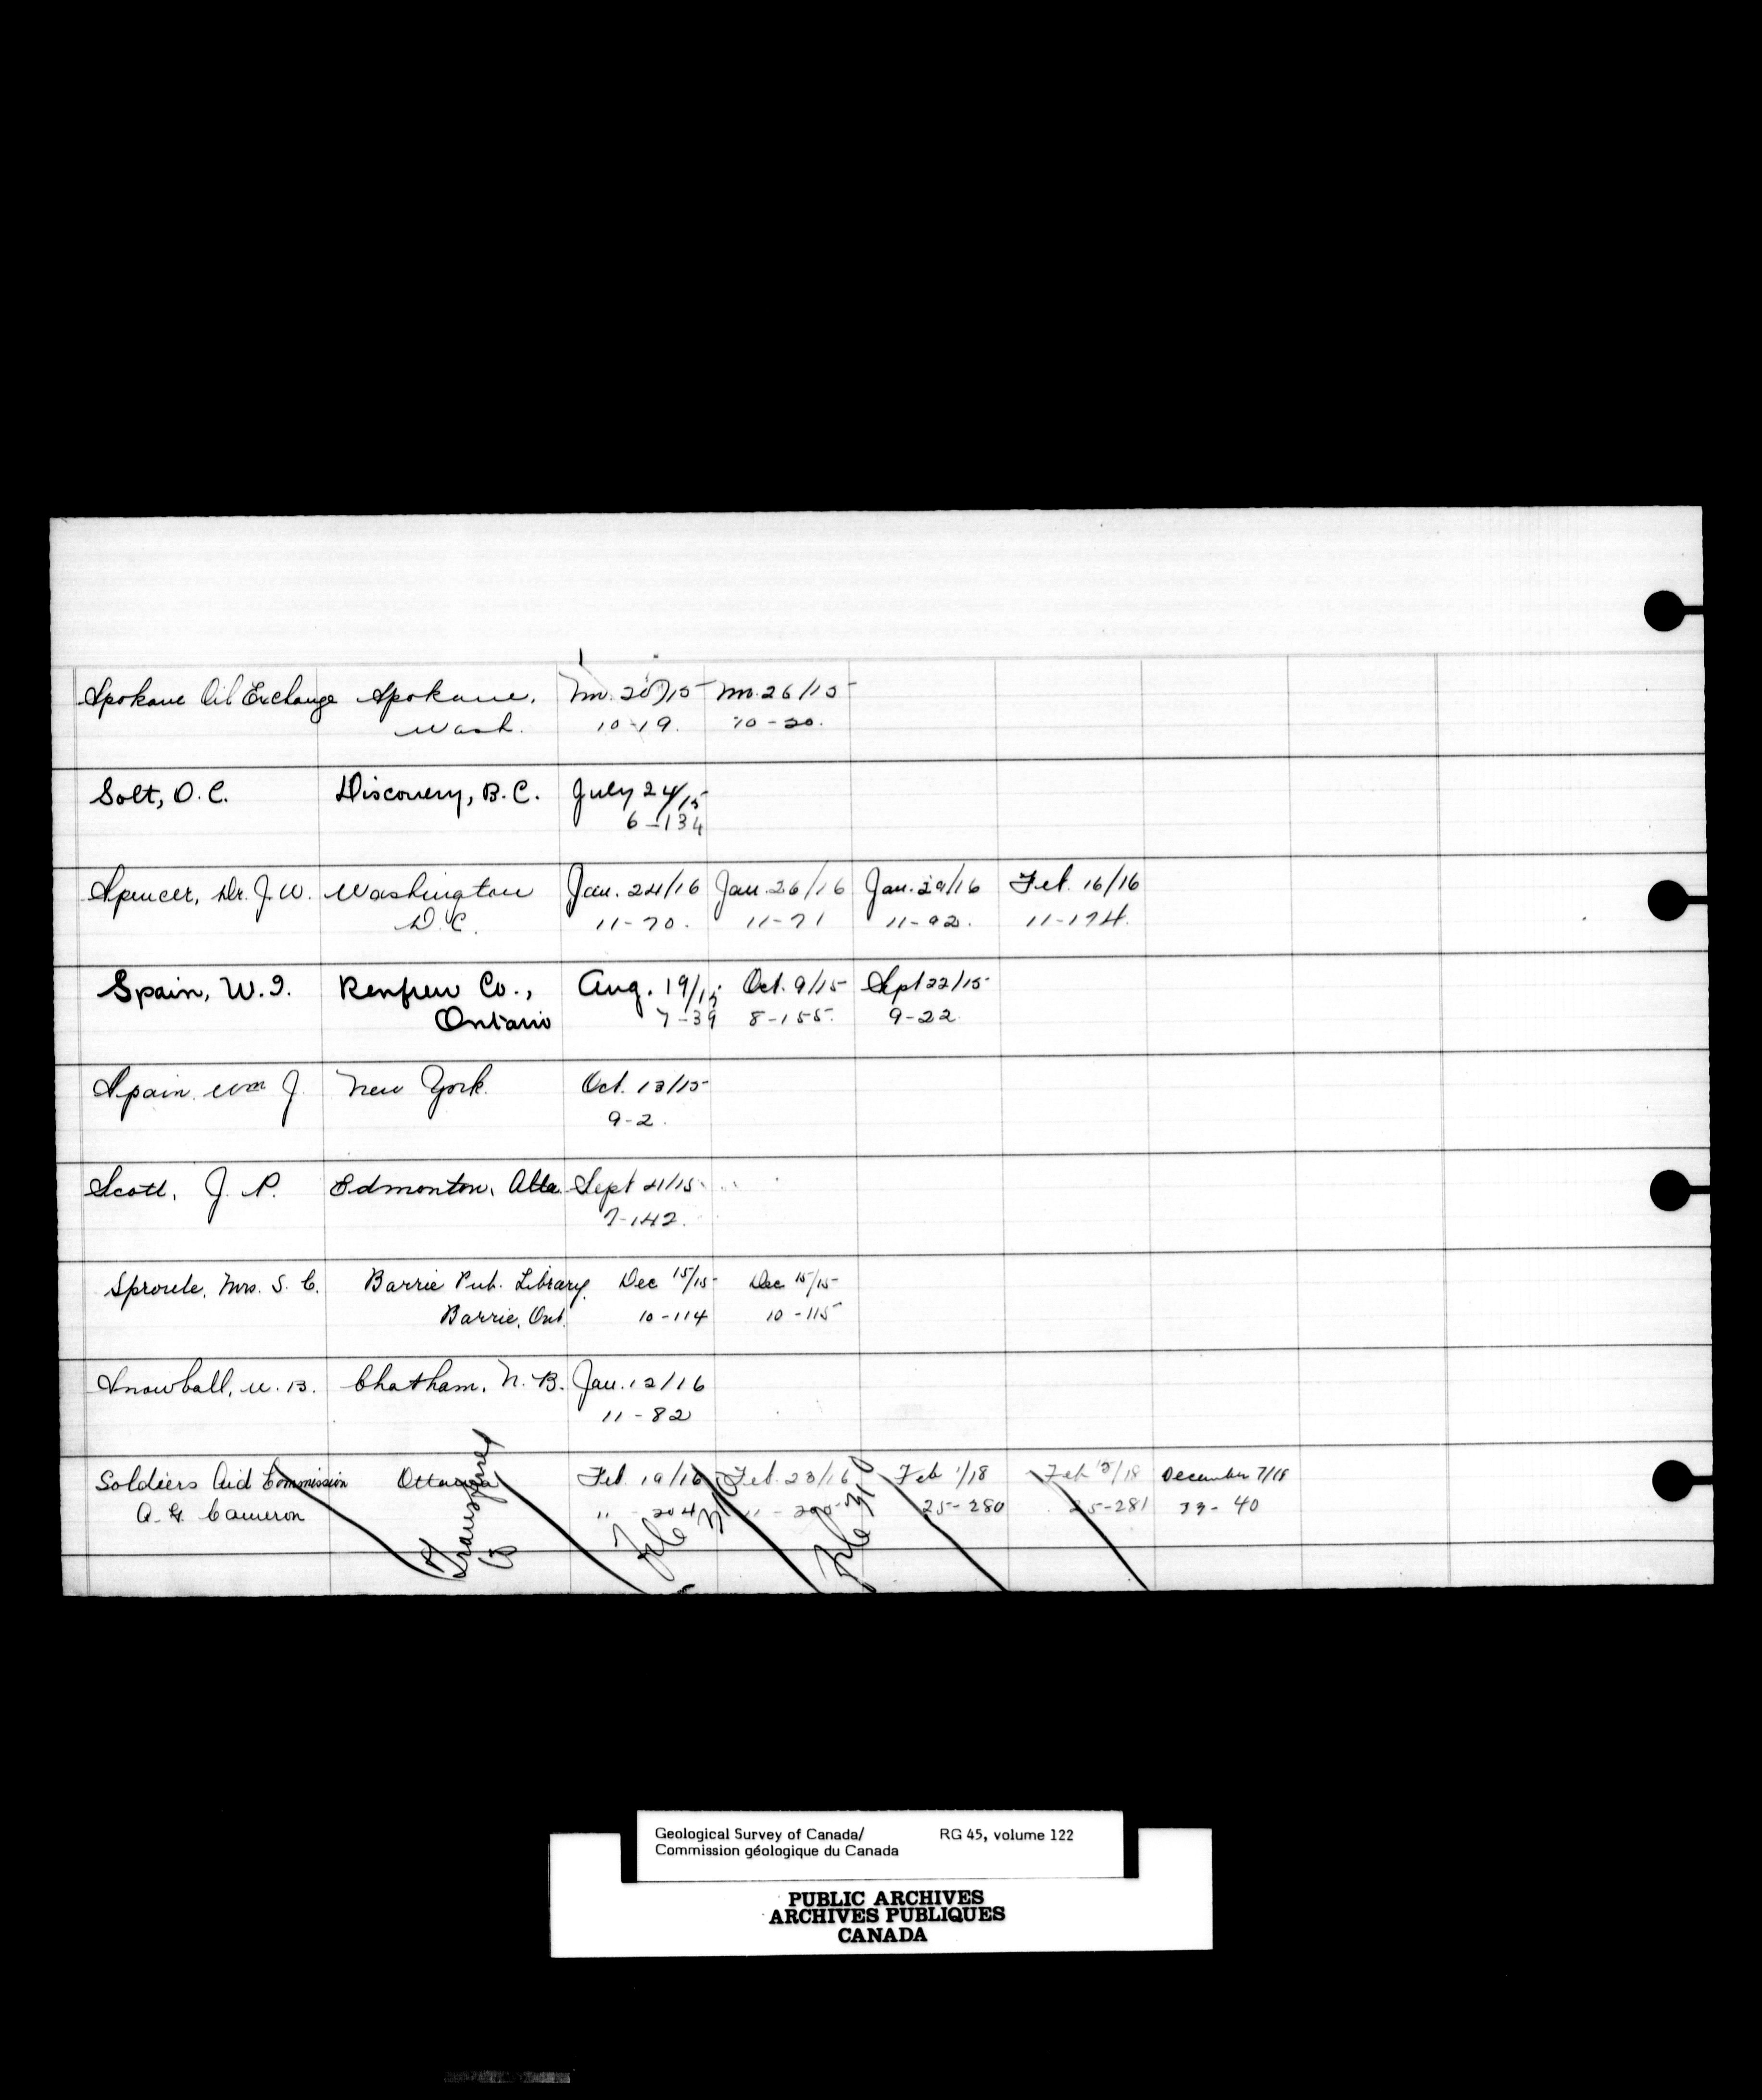 Spokane Oil Exchange Spokane, Nov. 26/15 Nov. 26/15
Wash. 10-19. 10-20.
Solt, O.C. Discovery, B.C. July 24/15
6-134
Spencer, Dr. J.W. Washington Jan. 24/16 Jan. 26/16 Jan. 29/16 Feb. 16/16
D.C. 11-70. 11-71 11-92. 11-174.
Spain, W.J. Renfrew Co., Aug. 19/15 Oct. 9/15 Sept 22/15
Ontario 7-39 8-155. 9-22.
Spain, Wm J. New York. Oct. 13/15
9-2.
Scott, J. P. Edmonton, Alta Sept 21/15
7-142.
Sproule, Mrs. S. C. Barrie Pub. Library, Dec 15/15 Dec 15/15
Barrie, Ont. 10-114 10-115
Snowball, W. B. Chatham, N. B. Jan. 12/16
11-82
Soldiers Aid Commission Ottawa Feb. 19/16 Feb. 23/16 Feb 1/18 Feb /18 December 7/18
A. G. Cameron " 204 11-205 25-280 25-281 33-40
Transferred
to
File 31 0
File 31 0
Geological Survey of Canada/ RG 45, volume 122
Commission géologique du Canada
PUBLIC ARCHIVES
ARCHIVES PUBLIQUES
CANADA